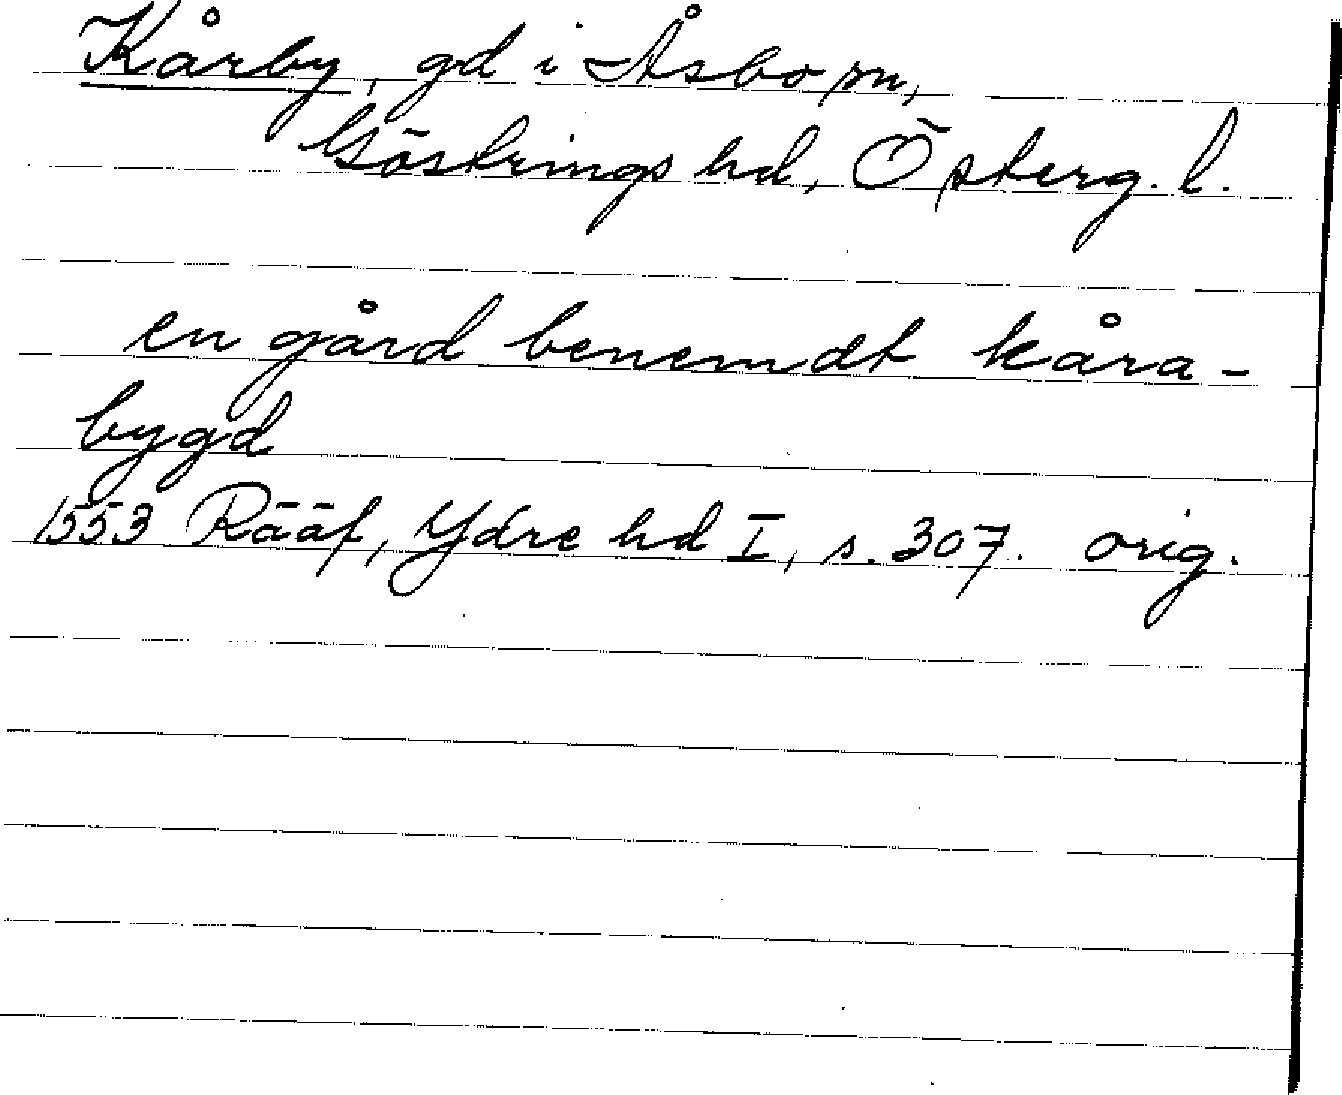 Kårby, gd i Åsbo sn,
Göstrings hd, Österg. l.
en gård benemdt kåra-
bygd
1553 Rääf, Ydre hd I, s. 307. orig.